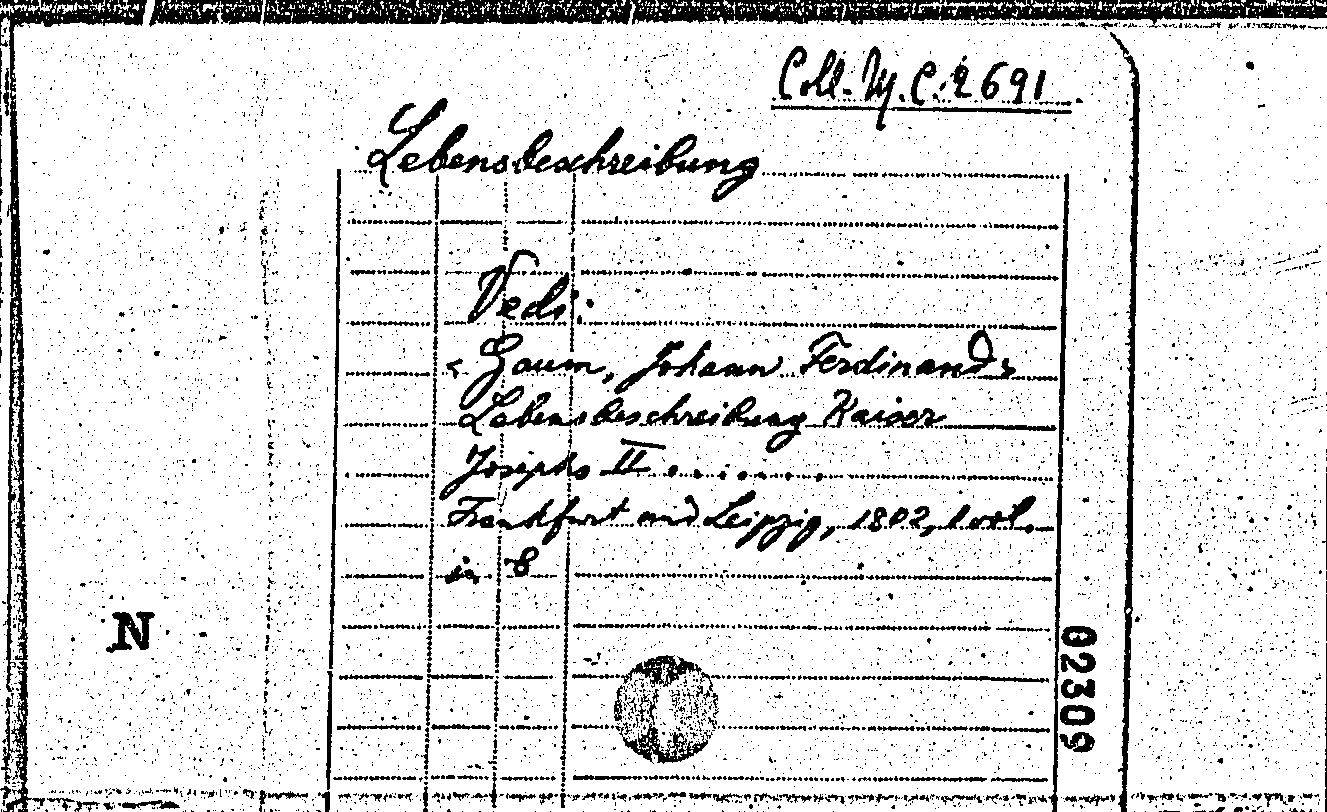 Coll. M. C. 2691
Lebensbeschreibung
Vedi:
< Gaum, Johann Ferdinand >
Lebensbeschreibung Kaiser
Josephs II . . . . . . .
Frankfurt und Leipzig, 1802, 1 vol.
in 8
N
02309